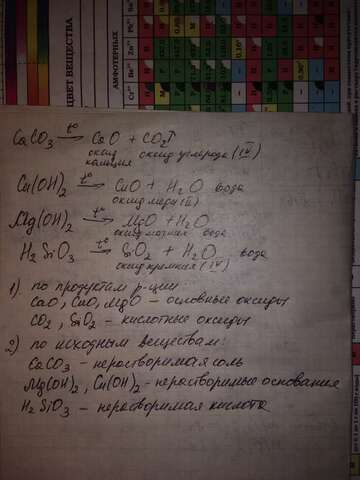 ЦВЕТ ВЕЩЕСТВА
АМФОТЕРНЫХ
CaCO₃ →t° CaO + CO₂↑
оксид кальция оксид углерода (IV)
Cu(OH)₂ →t° CuO + H₂O вода
оксид меди (II)
Mg(OH)₂ →t° MgO + H₂O
оксид магния вода
H₂SiO₃ →t° SiO₂ + H₂O вода
оксид кремния (IV)
1) по продуктам р-ции:
CaO, CuO, MgO – основные оксиды
CO₂, SiO₂ – кислотные оксиды
2) по исходным веществам:
CaCO₃ – нерастворимая соль
Mg(OH)₂, Cu(OH)₂ – нерастворимые основания
H₂SiO₃ – нерастворимая кислота